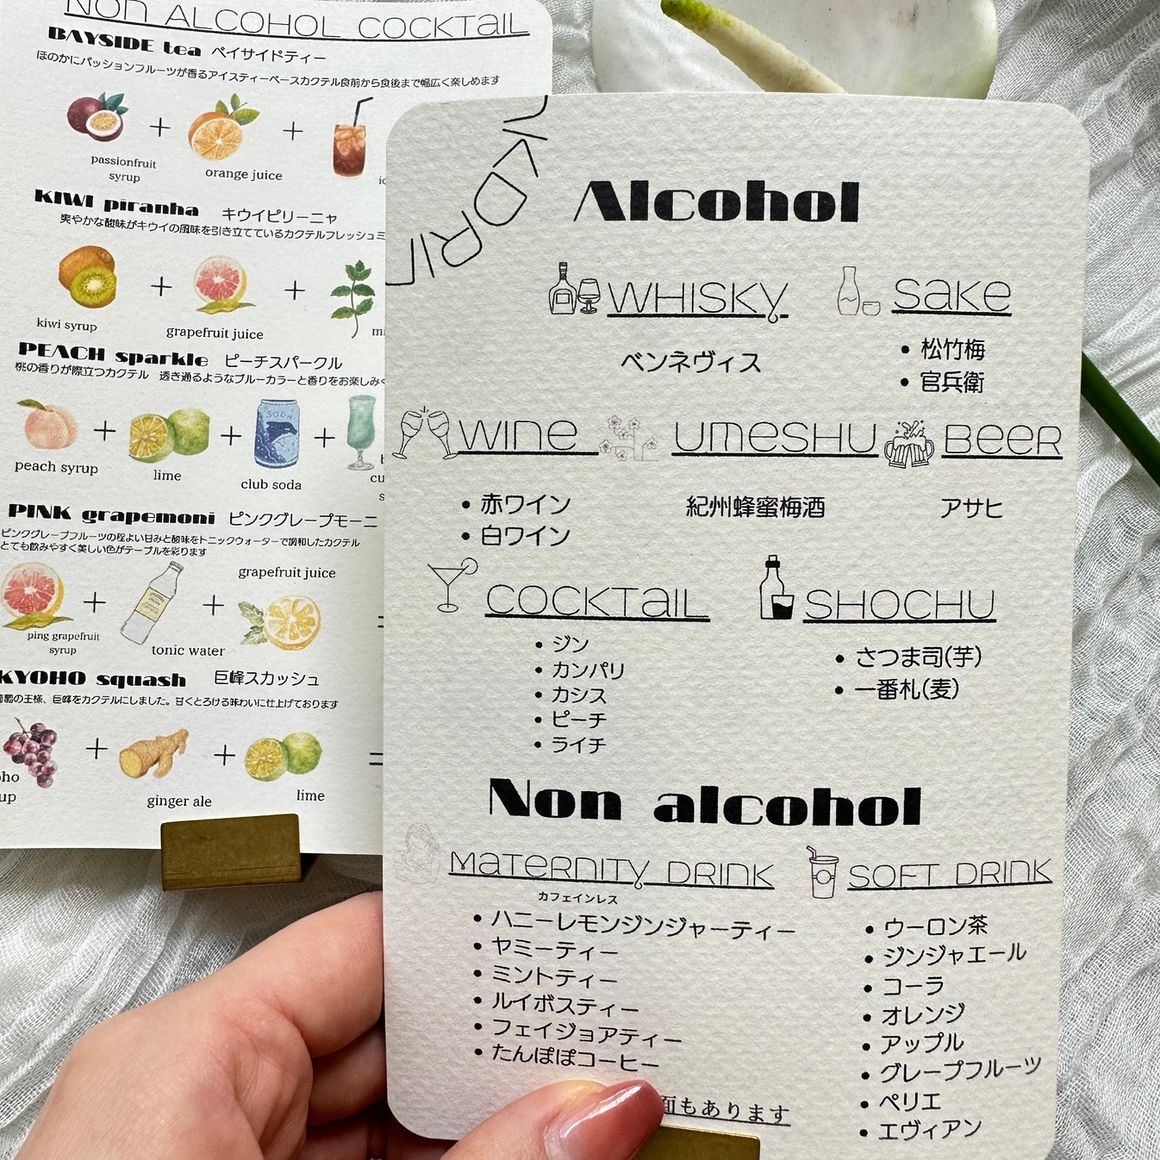 NON ALCOHOL COCKTAIL
BAYSIDE tea ベイサイドティー
ほのかにパッションフルーツが香るアイスティーベースカクテル食前から食後まで幅広く楽しめます
+ +
passionfruit
syrup
orange juice
KIWI piranha キウイピリーニャ
爽やかな酸味がキウイの風味を引き立てているカクテルフレッシュミ
+ +
kiwi syrup
grapefruit juice
PEACH sparkle ピーチスパークル
桃の香りが際立つカクテル 透き通るようなブルーカラーと香りをお楽しみく
+ + +
SODA
peach syrup
lime
club soda
PINK grapemoni ピンクグレープモーニ
ピンクグレープフルーツの程よい甘みと酸味をトニックウォーターで調和したカクテル
とても飲みやすく美しい色がテーブルを彩ります
+ +
ping grapefruit
syrup
tonic water
grapefruit juice
=
KYOHO squash 巨峰スカッシュ
葡萄の王様、巨峰をカクテルにしました。甘くとろける味わいに仕上げております
+ + =
ginger ale
lime
Alcohol
WHISKY
ベンネヴィス
SAKE
• 松竹梅
• 官兵衛
WINE
• 赤ワイン
• 白ワイン
UMESHU
紀州蜂蜜梅酒
BEER
アサヒ
COCKTAIL
• ジン
• カンパリ
• カシス
• ピーチ
• ライチ
SHOCHU
• さつま司(芋)
• 一番札(麦)
Non alcohol
MATERNITY DRINK
カフェインレス
• ハニーレモンジンジャーティー
• ヤミーティー
• ミントティー
• ルイボスティー
• フェイジョアティー
• たんぽぽコーヒー
SOFT DRINK
• ウーロン茶
• ジンジャエール
• コーラ
• オレンジ
• アップル
• グレープフルーツ
• ペリエ
• エヴィアン
面もあります